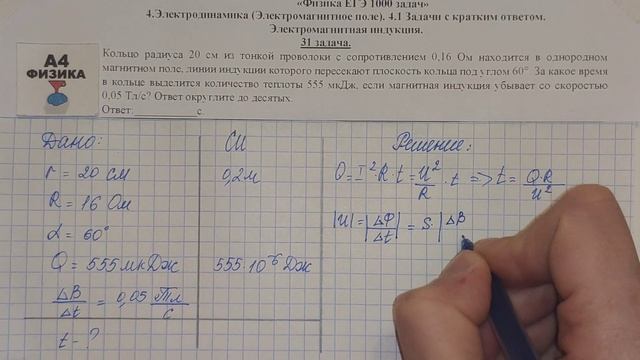 «Физика ЕГЭ 1000 задач»
4.Электродинамика (Электромагнитное поле). 4.1 Задачи с кратким ответом.
Электромагнитная индукция.
31 задача.
А4
ФИЗИКА
Кольцо радиуса 20 см из тонкой проволоки с сопротивлением 0,16 Ом находится в однородном
магнитном поле, линии индукции которого пересекают плоскость кольца под углом 60° За какое время
в кольце выделится количество теплоты 555 мкДж, если магнитная индукция убывает со скоростью
0,05 Тл/с? Ответ округлите до десятых.
Ответ:____________с.
Дано:
r = 20 см
R = 16 Ом
α = 60°
Q = 555 мкДж
ΔB/Δt = 0,05 Тл/с
t - ?
СИ
0,2м
555·10⁻⁶ Дж
Решение:
Q = I²·R·t = U²/R · t => t = Q·R/U²
|U| = |ΔΦ/Δt| = S·|ΔB